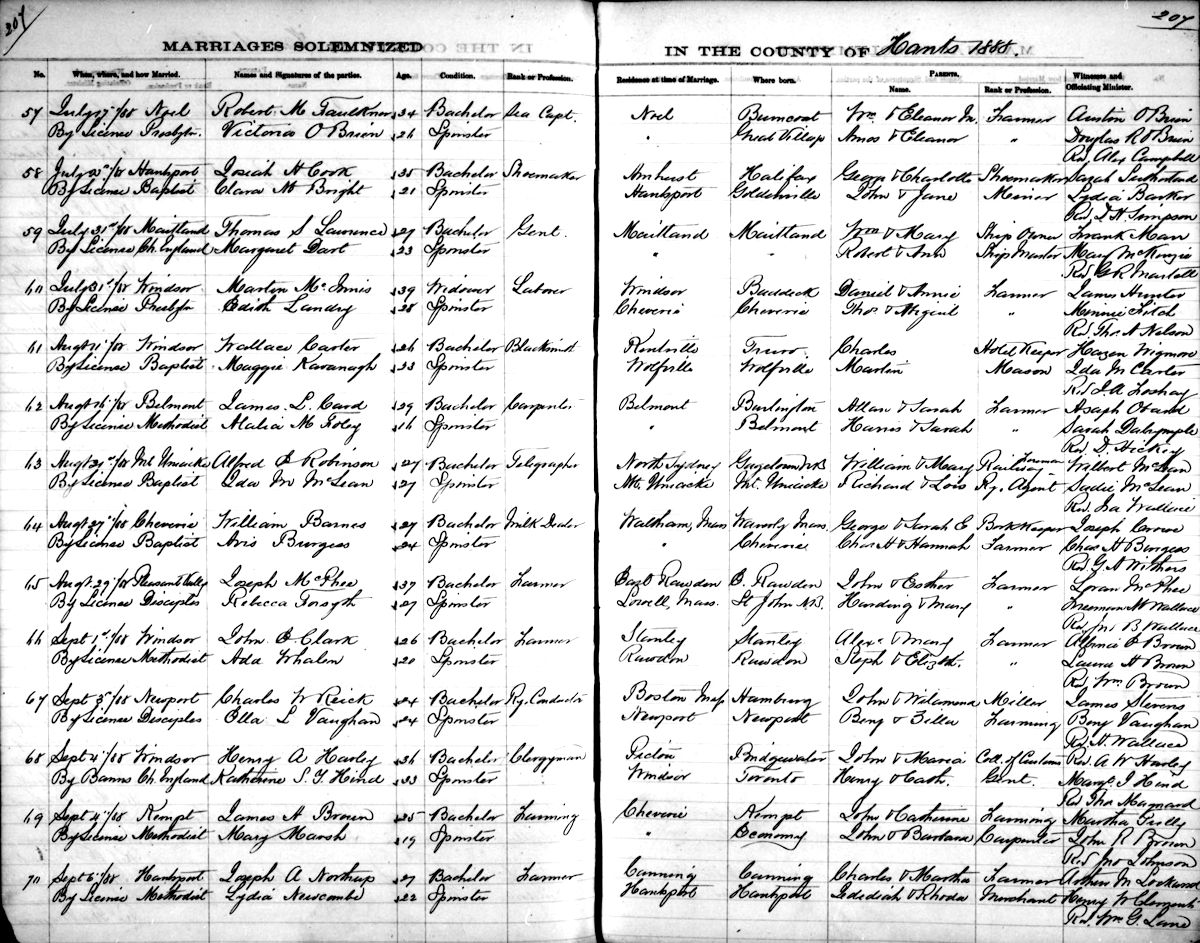 207
207
MARRIAGES SOLEMNIZED IN THE COUNTY OF Hants 1888.
No. When, where, and how Married. Names and Signatures of the parties. Age. Condition. Rank or Profession. Residence at time of Marriage. Where born. PARENTS. Name. Rank or Profession. Witnesses and Officiating Minister.
57 July 17"/88 Noel Robert M Faulkner 34 Bachelor Sea Capt. Noel Burncoat Wm & Eleanor M. Farmer Austin O'Brien
By License Presbytn. Victoria O'Brien 26 Spinster " Great Village Amos & Eleanor " Douglas R O'Brien
Rev. Alex Campbell
58 July /88 Hantsport Josiah H Cook 35 Bachelor Shoemaker Amherst Halifax George & Charlotte Shoemaker Sarah Sutherland
By License Baptist Clara M Bright 21 Spinster Hantsport Goldenville John & Jane Meiner Lydia Barker
Rev. D H Simpson
59 July 31st/88 Maitland Thomas S Lawrence 27 Bachelor Gent. Maitland Maitland Wm & Mary Ship Owner Frank Marr
By License Ch. England Margaret Dart 23 Spinster " " Robert & Ann Ship Master Mary McKenzie
Rev G. R. Martell
60 July 31st/88 Windsor Martin McInnis 39 Widower Laborer Windsor Baddeck Daniel & Annie Farmer James Hunter
By License Presbytn Edith Landry 28 Spinster Cheverie Cheverie Thos & Abigail " Minnie Fitch
Rev Thos A Nelson
61 Augt 11"/88 Windsor Wallace Carter 26 Bachelor Blacksmith Kentville Truro. Charles Hotel Keeper Hazen Wigmore
By License Baptist Maggie Kavanagh 23 Spinster Wolfville Wolfville Martin Mason Ida M Carter
Rev J. A.
62 Augt 16"/88 Belmont James L. Card 29 Bachelor Carpenter Belmont Burlington Allan & Sarah Farmer Asaph
By License Methodist Atalia M Foley 16 Spinster " Belmont Harris & Sarah " Sarah Dalrymple
Rev. D. Hickey
63 Augt 21st/88 Mt Uniacke Alfred E Robinson 27 Bachelor Telegrapher North Sydney Gagetown NB William & Mary Railway Foreman Wilbert McLean
By License Baptist Ida M McLean 27 Spinster Mt. Uniacke Mt. Uniacke Richard & Lois Ry. Agent Sadie McLean
Rev. Isa Wallace
64 Augt 27"/88 Cheverie William Barnes 27 Bachelor Milk Dealer Waltham, Mass Waverly Mass. George & Sarah E Bookkeeper Joseph Crowe
By License Baptist Avis Burgess 24 Spinster " Cheverie Chas H & Hannah Farmer Chas H Burgess
Rev. G A Withers
65 Augt. 29"/88 Pleasant Valley Joseph McPhee 37 Bachelor Farmer East Rawdon E. Rawdon John & Esther Farmer Loran McPhee
By License Disciples Rebecca Forsyth 27 Spinster Lowell, Mass. St John N.B. Harding & Mary " Freeman M Wallace
Rev Jno. B Wallace
66 Sept 1st/88 Windsor John E Clark 26 Bachelor Farmer Stanley Stanley Alexr & Mary Farmer E Brown
By License Methodist Ada Whalen 20 Spinster Rawdon Rawdon Steph & Elizth. " Laura H Brown
Rev. Wm Brown
67 Sept 3"/88 Newport Charles W Reick 24 Bachelor Ry. Conductor Boston Mass Hamburg John & Miller James Stevens
By License Disciples Ella L Vaughan 24 Spinster Newport Newport Benj & Zilla Farming Benj Vaughan
Rev. H. Wallace
68 Sept 4"/88 Windsor Henry A Harley 36 Bachelor Clergyman Pictou Bridgewater John & Maria Coll. of Customs Rev. A W Harley
By Banns Ch. England Katherine S. Y Hind 33 Spinster Windsor Toronto Henry & Cath. Gent. Margt I Hind
Rev Thos Maynard
69 Sept 4"/88 Kempt James H Brown 25 Bachelor Farming Cheverie Kempt John & Catherine Farming Martha
By License Methodist Mary Marsh 19 Spinster " Economy John & Barbara Carpenter John R Brown
Rev Jno Johnson
70 Sept 6"/88 Hantsport Joseph A Northup 27 Bachelor Farmer Canning Canning Charles & Martha Farmer Arthur M Lockwood
By License Methodist Lydia Newcombe 22 Spinster Hantsport Hantsport Jedidiah & Rhoda Merchant Henry W Clements
Rev. Wm G. Lane